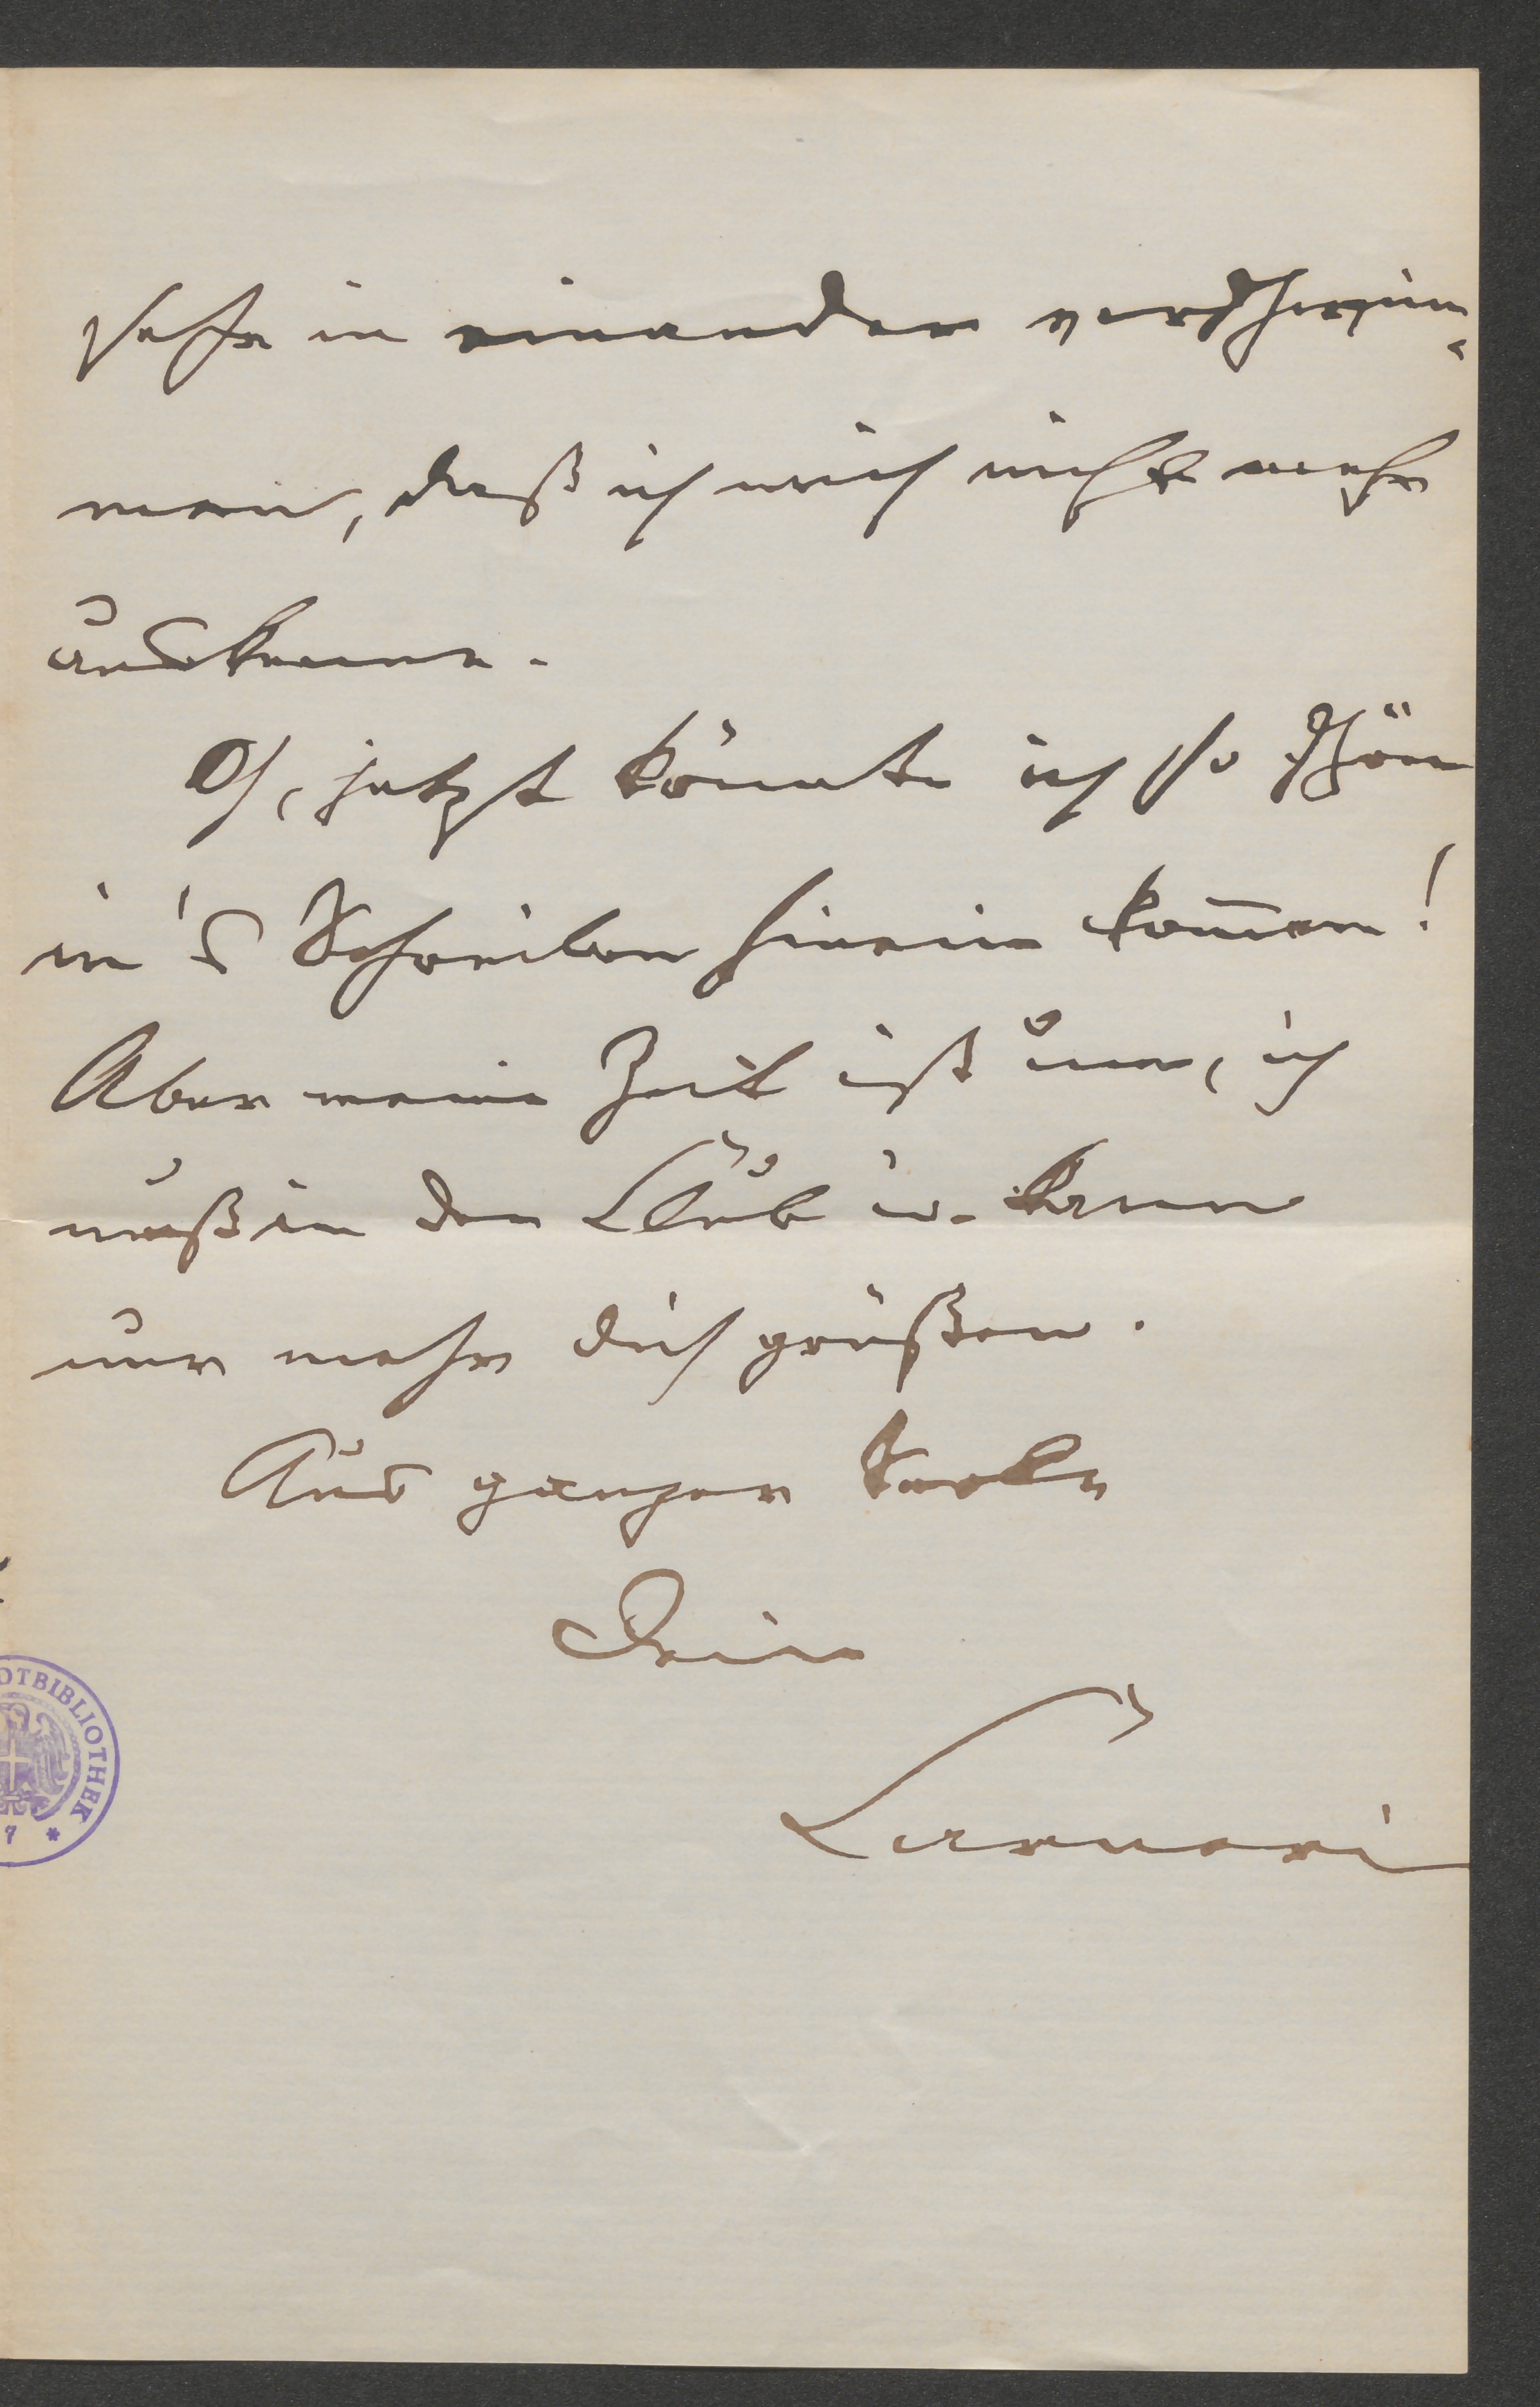 sehr in einander verschwim-
men, daß ich mich nicht mehr
auskenne.
O, jetzt könnte ich so schön
in's Schreiben hinein kom̅en!
Aber meine Zeit ist um, ich
muß in den Club u. kann
nur mehr dich grüßen.
Aus ganzer Seele
Dein
Carneri
OTBIBLIOTHEK
7 *